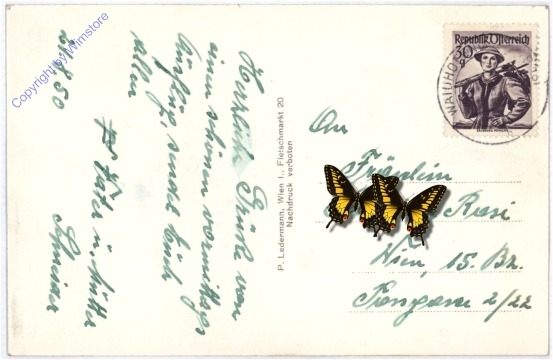 Copyright by Wimstore
24/8 50
Herzliche Grüße von
einem schönen vormittags
sendet Euch
allen
Vater u. Mutter
P. Ledermann, Wien I., Fleischmarkt 20
Nachdruck verboten
Republik Österreich
30
g
SALZBURG PONGAU
An
Fräulein
Resi
Wien, 15. Bz.
2/22